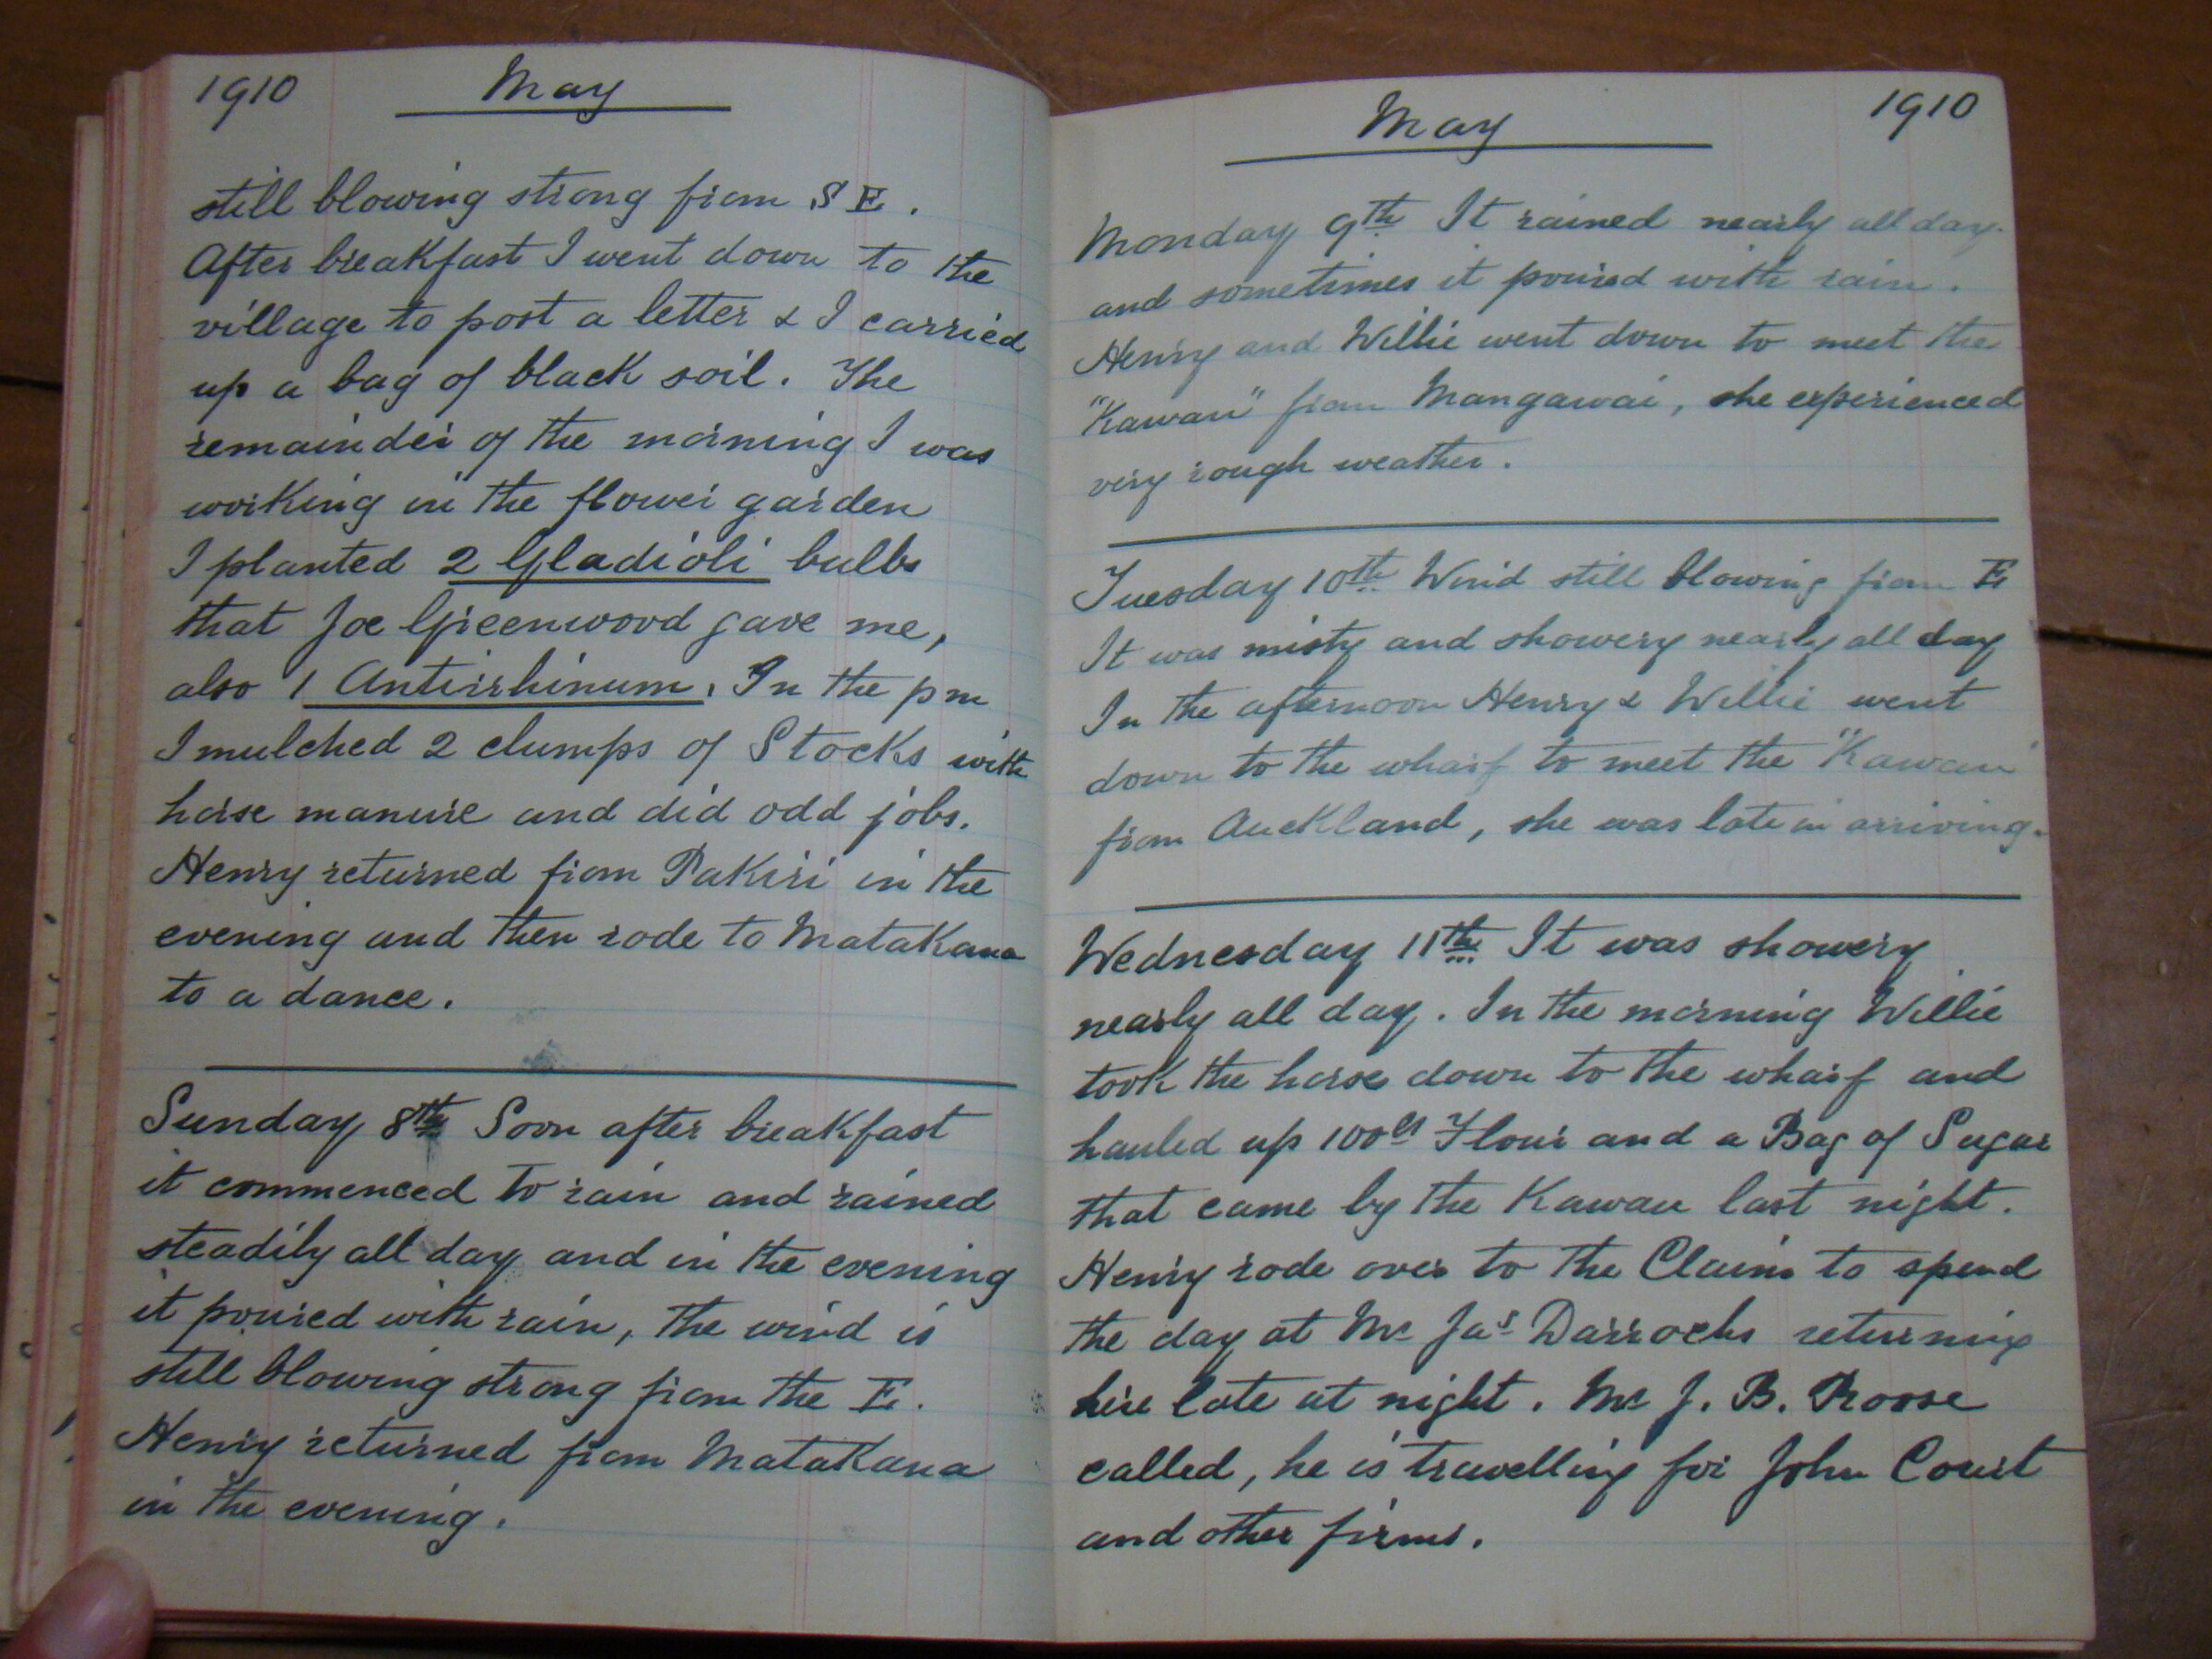 1910 May
still blowing strong from S E.
After breakfast I went down to the
village to post a letter & I carried
up a bag of black soil. The
remainder of the morning I was
working in the flower garden
I planted 2 Gladioli bulbs
that Joe Greenwood gave me,
also 1 Antirrhinum. In the pm
I mulched 2 clumps of Stocks with
horse manure and did odd jobs.
Henry returned from Pakiri in the
evening and then rode to Matakana
to a dance.
Sunday 8th Soon after breakfast
it commenced to rain and rained
steadily all day and in the evening
it poured with rain, the wind is
still blowing strong from the E.
Henry returned from Matakana
in the evening.
May 1910
Monday 9th It rained nearly all day.
and sometimes it poured with rain.
Henry and Willie went down to meet the
"Kawau" from Mangawai, she experienced
very rough weather.
Tuesday 10th Wind still blowing from E
It was misty and showery nearly all day
In the afternoon Henry & Willie went
down to the wharf to meet the "Kawau"
from Auckland, she was late in arriving.
Wednesday 11th It was showery
nearly all day. In the morning Willie
took the horse down to the wharf and
hauled up 100 Flour and a Bag of Sugar
that came by the Kawau last night.
Henry rode over to the Claim to spend
the day at Mr Jas Darrochs returning
here late at night. Mr J. B. Roose
called, he is travelling for John Court
and other firms.